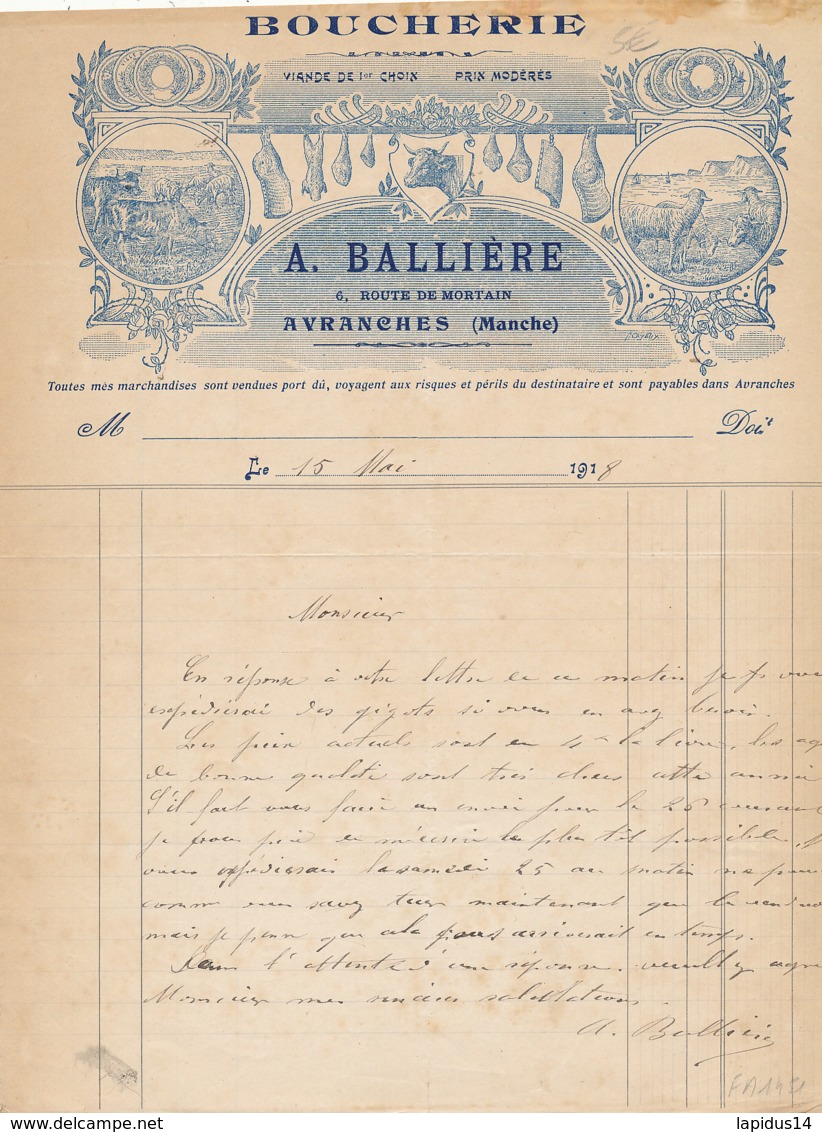 BOUCHERIE
5€
VIANDE DE 1er CHOIX — PRIX MODÉRÉS
A. BALLIÈRE
6, ROUTE DE MORTAIN
AVRANCHES (Manche)
Toutes mes marchandises sont vendues port dû, voyagent aux risques et périls du destinataire et sont payables dans Avranches
M Doit
Le 15 Mai 1918
Monsieur
En réponse à votre lettre de ce matin je
expédierai des gigots si vous en avez besoin.
Les prix actuels sont de 4 la livre, les
de bonne qualité sont très chers cette année
S'il faut vous faire un envoi pour le 26 courant
je vous prie de m'écrire le plus tôt possible,
vous expédierais le samedi 25 au matin ne
comme vous savez tuer maintenant que le
mais je pense que cela vous arriverait en temps.
Dans l'attente d'une réponse. veuillez
Monsieur mes sincères salutations.
A. Ballière
FA1451
www.delcampe.net
lapidus14